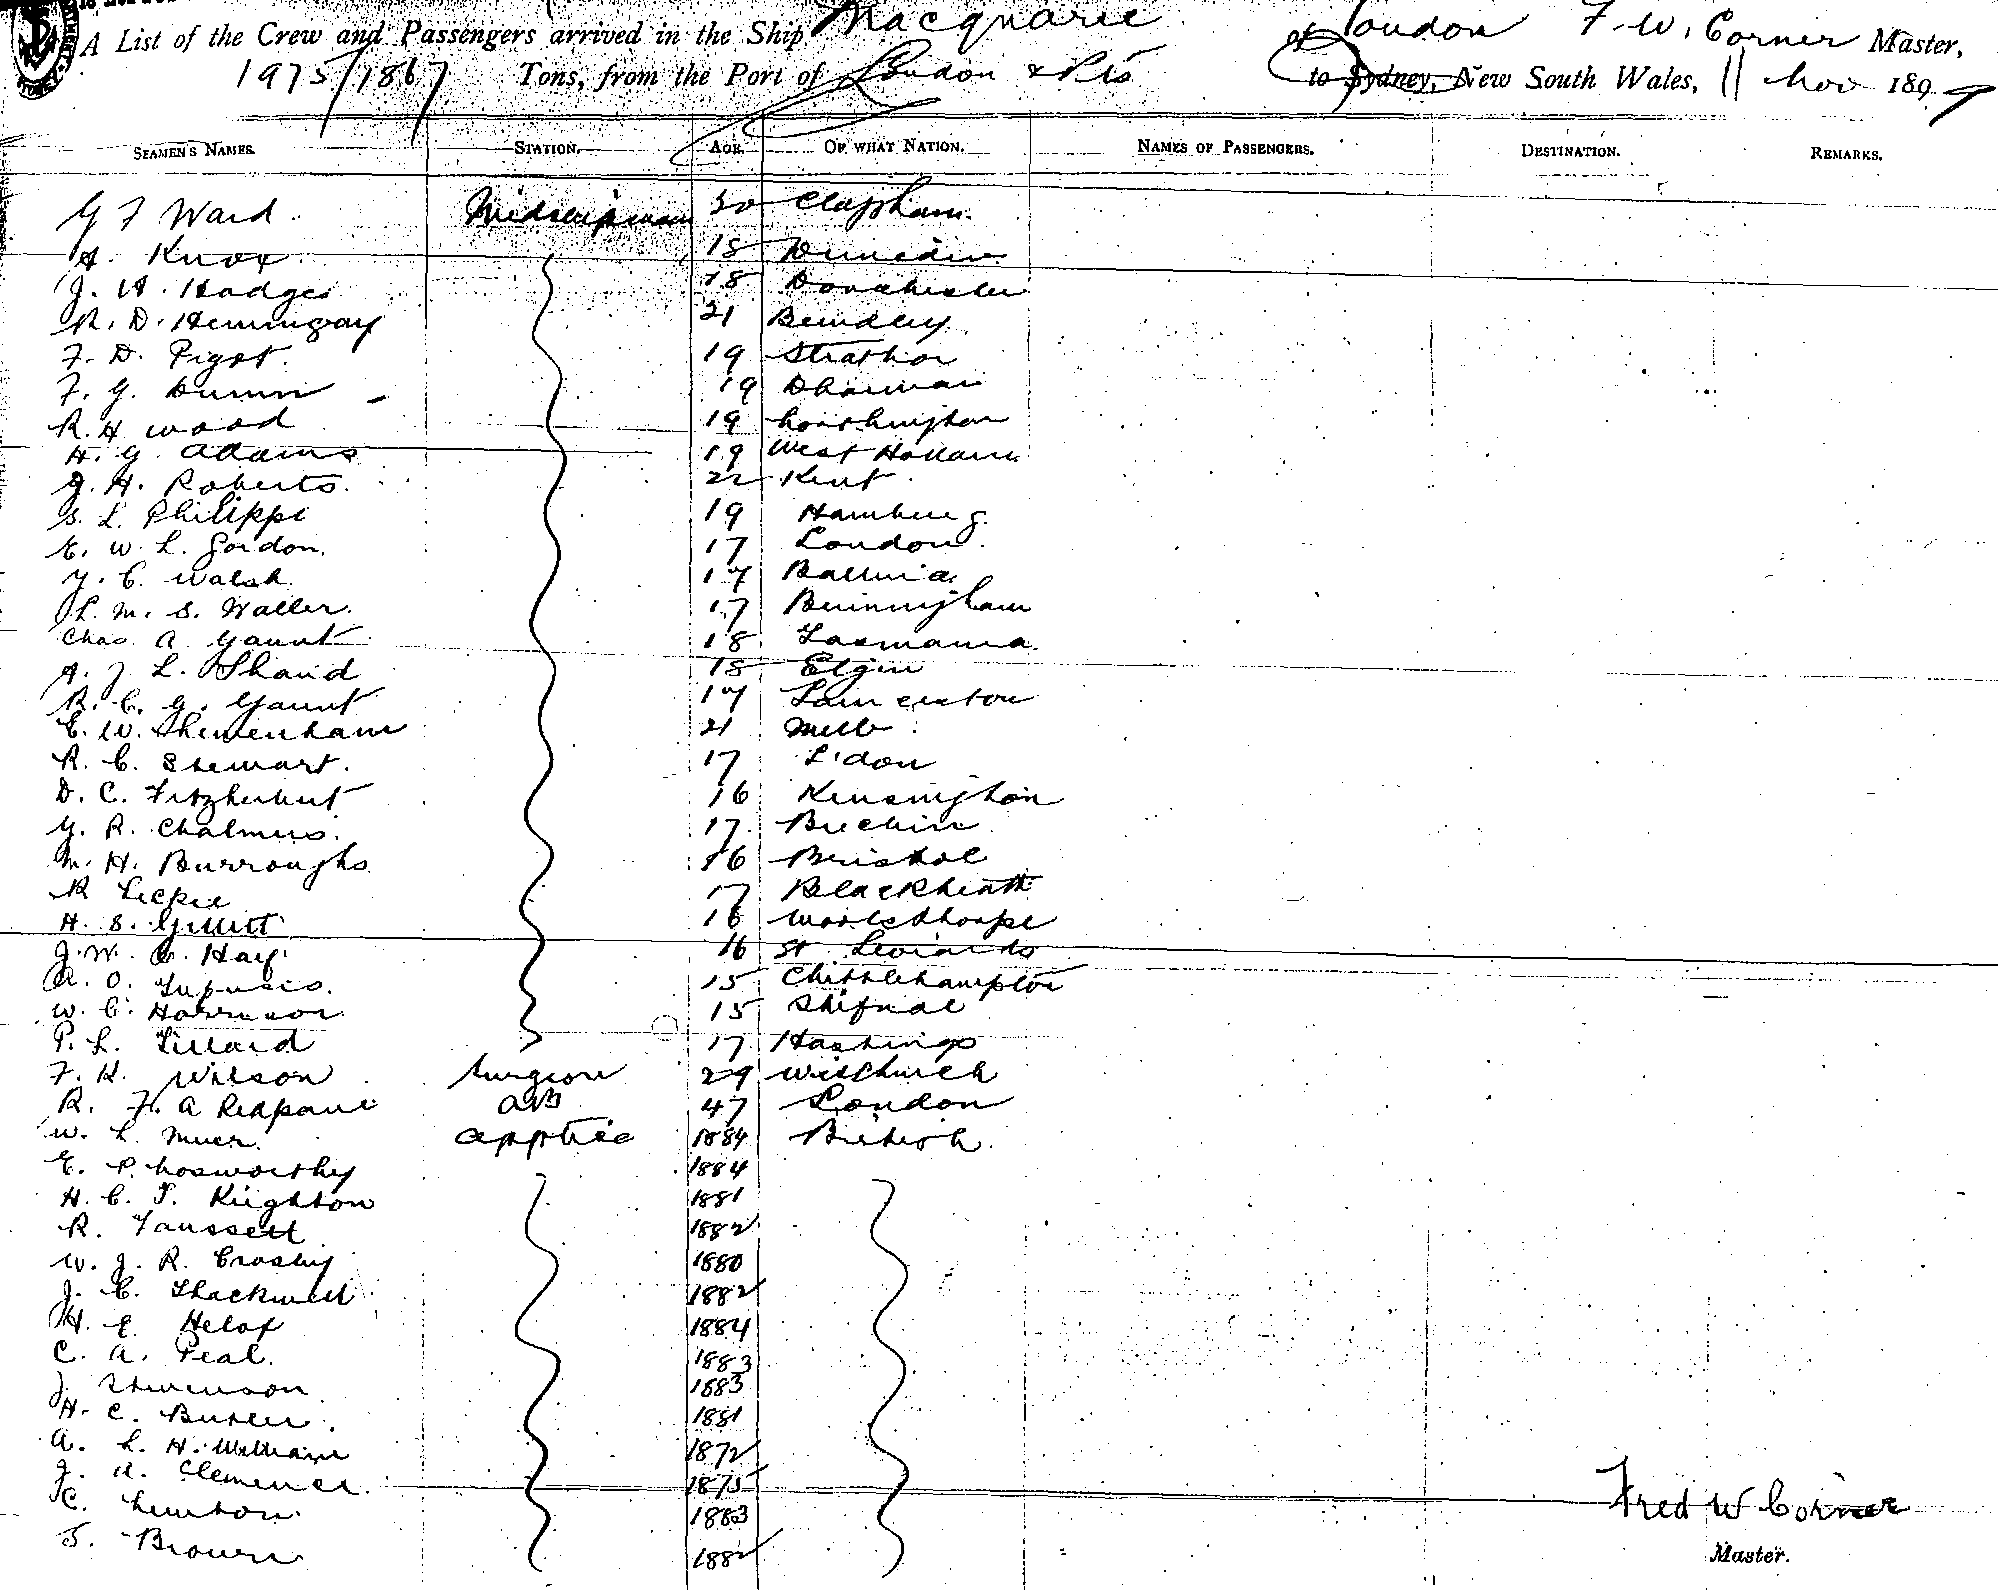 A List of the Crew and Passengers arrived in the Ship Macquarie of London F. W. Corner Master,
1975/1867 Tons, from the Port of London & Pts to Sydney, New South Wales, 11 Nov 1897
SEAMEN'S NAMES. STATION. AGE. OF WHAT NATION. NAMES OF PASSENGERS. DESTINATION. REMARKS.
G F Ward. Midshipman 20 Clapham.
A. Knox. 18 Dunedin
J. H. Hodges 18 Dorchester
R. D. Hemingway 21
F. D. Pigot. 19
F. G. Dunn 19
R. H Wood 19
H. G. Adams 19 West
J. H. Roberts. 22 Kent.
S. L. Philippi 19 Hamburg.
E. W. L. Gordon. 17 London.
G. C. Walsh. 17 Ballina
L. M. S. Waller. 17 Birmingham
Chas. A Gaunt 18 Tasmania.
A. J. L. Shand 18 Elgin
R. C. G. Gaunt 17 Launceston
E. W. 21 Melb.
R. C. Stewart. 17 L'don
D. C. Fitzherbert 16 Kensington
G. R. Chalmers. 17. Brechin.
M. H. Burroughs 16 Bristol
R Leckie 17 Blackheath
H. S. Gillett 16 Woolsthorpe
J. W. C. Hay. 16 St Leonards
A. O. 15 Chittlehampton
W. C. Harrison 15 Shifnal
P. L. Lillard 17 Hastings
F. H. Wilson Surgeon 29 Whitchurch
R. F. A Redpath AB 47 London
W. L. Muer. Apptice 1884 British.
E. P. Nosworthy 1884
H. C. T. Knighton 1881
R. Faussett 1882
W. J. R. Crosby 1880
J. C. Thackwell 1882
H. E. 1884
C. A. Peal. 1883
J. Stevenson 1883
H. C. Butler. 1881
A. L. H. William 1872
J. H. Clemence. 1875
C. Newton. 1883
S. Brown 1882
Fred W Corner
Master.